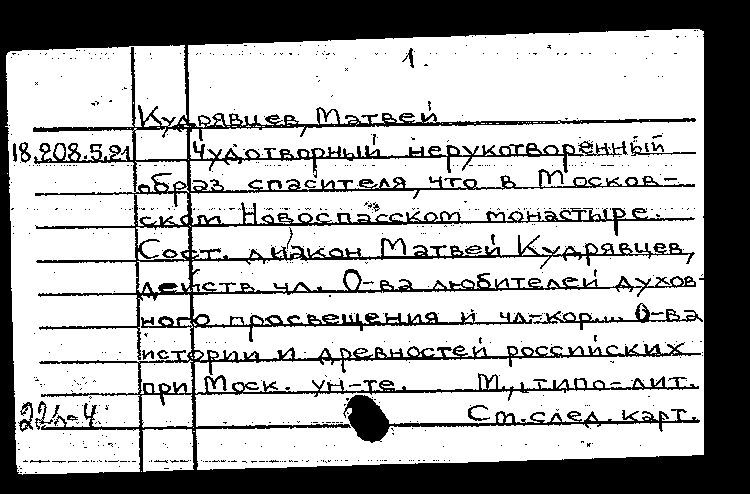 1.
Кудрявцев, Матвей
18.208.5.21 Чудотворный нерукотворенный
образ спасителя, что в Москов-
ском Новоспасском монастыре.
Сост. диакон Матвей Кудрявцев,
действ. чл. О-ва любителей духов-
ного просвещения и чл-кор... О-ва
истории и древностей российских
при Моск. ун-те. М., типо-лит.
См. след. карт.